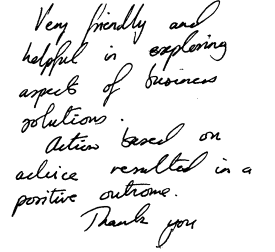 Very friendly and
helpful in exploring
aspects of business
solutions.
Action based on
advice resulted in a
positive outcome.
Thank you